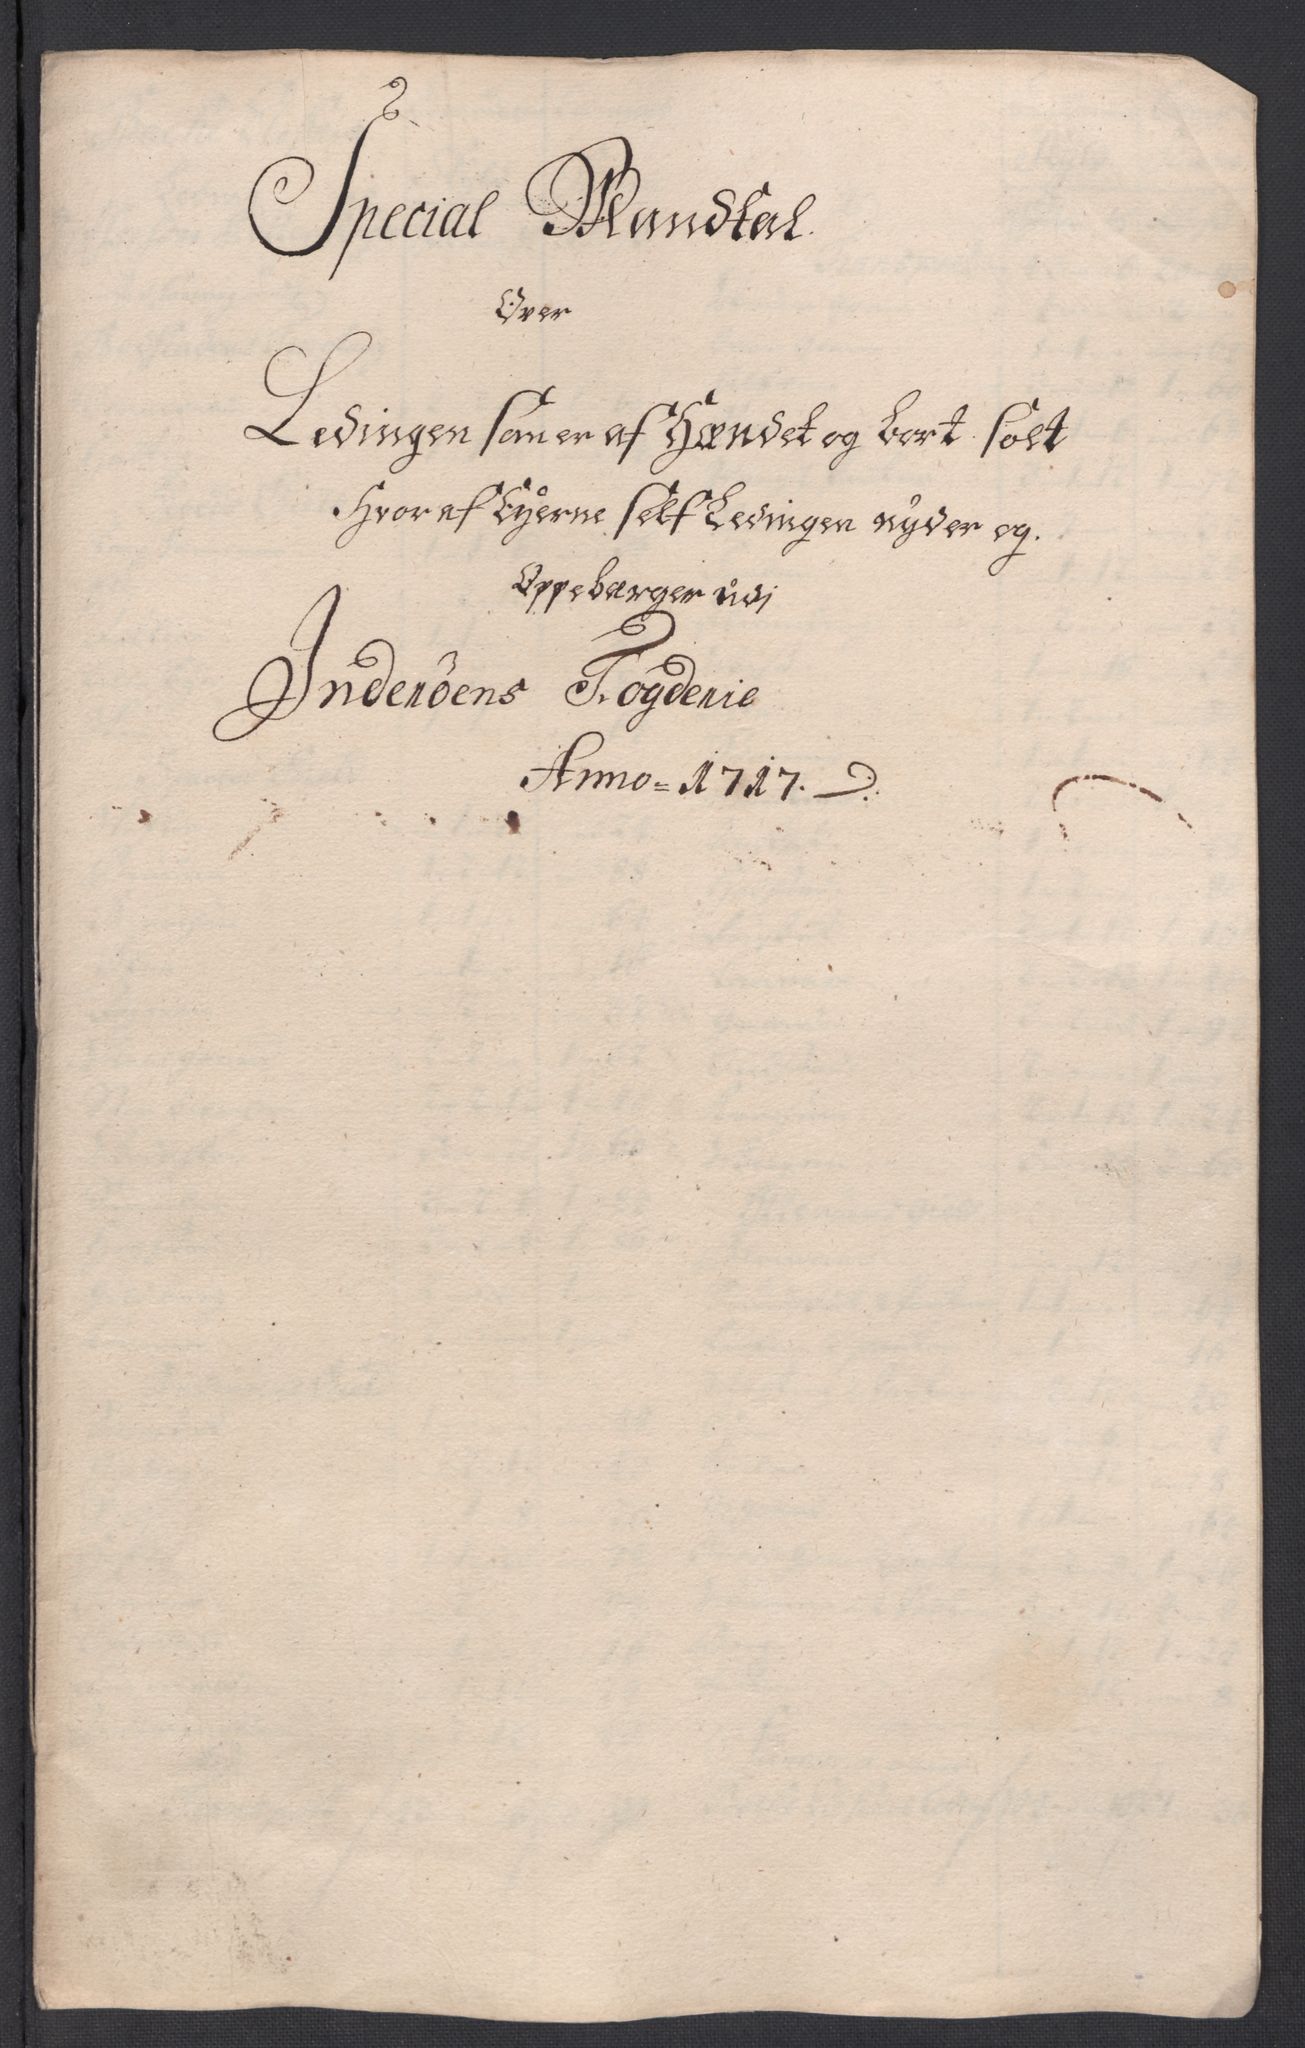 Special Mandtal.
Over
Ledingen som er af Hændet og bort solt
Hvor af Eyerne self Ledingen nyder og.
Oppebærger udj
Inderöens Fogderie
Anno= 1717.